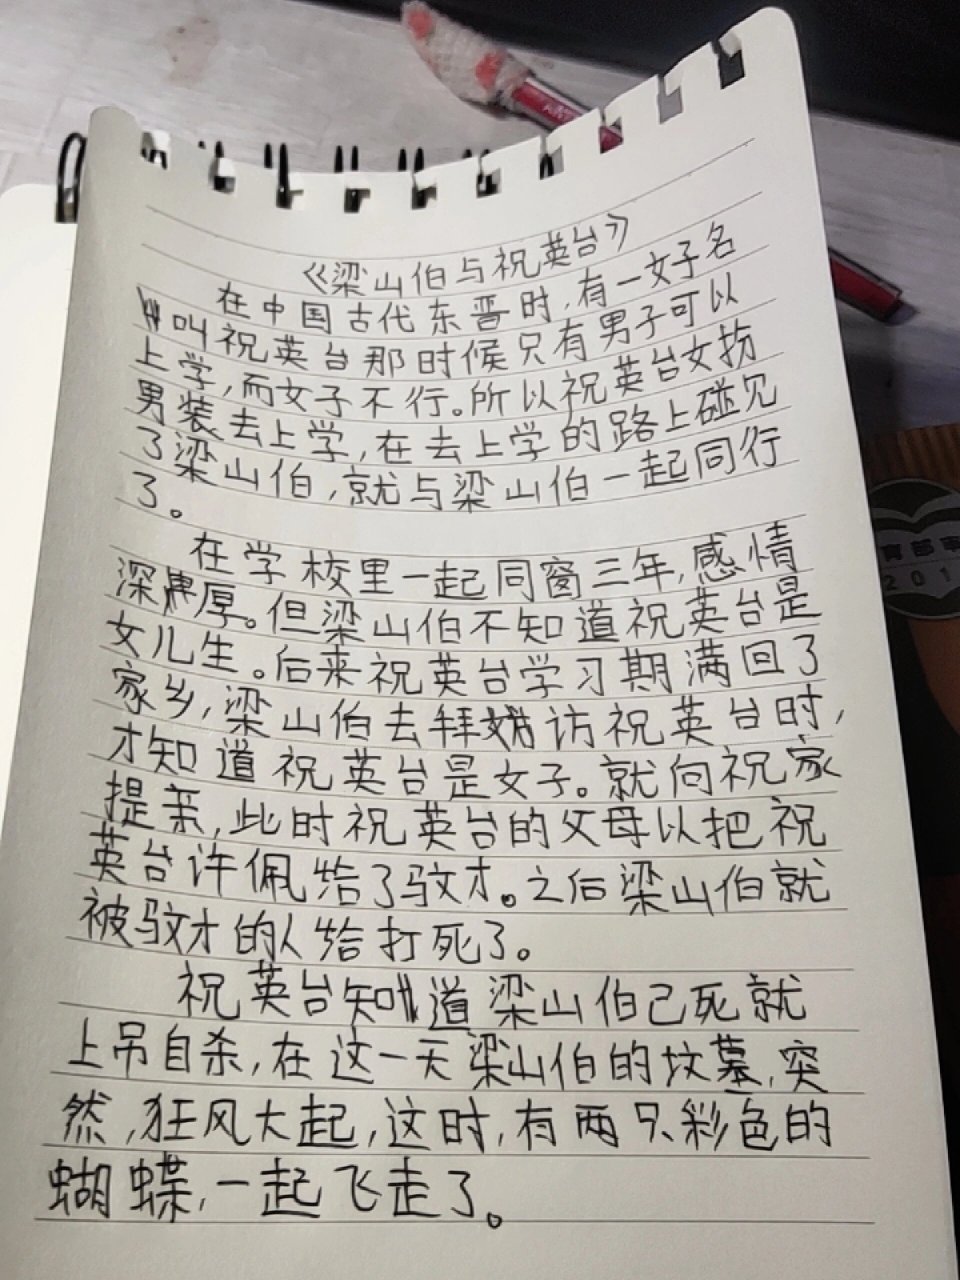 《梁山伯与祝英台》
在中国古代东晋时,有一女子名
叫祝英台那时候只有男子可以
上学,而女子不行。所以祝英台女扮
男装去上学,在去上学的路上碰见
了梁山伯,就与梁山伯一起同行
了。
在学校里一起同窗三年,感情
深厚。但梁山伯不知道祝英台是
女儿生。后来祝英台学习期满回了
家乡,梁山伯去拜访祝英台时,
才知道祝英台是女子。就向祝家
提亲,此时祝英台的父母以把祝
英台许佩给了马文才。之后梁山伯就
被马文才的人给打死了。
祝英台知道梁山伯已死就
上吊自杀,在这一天梁山伯的坟墓,突
然,狂风大起,这时,有两只彩色的
蝴蝶,一起飞走了。
育部审
201